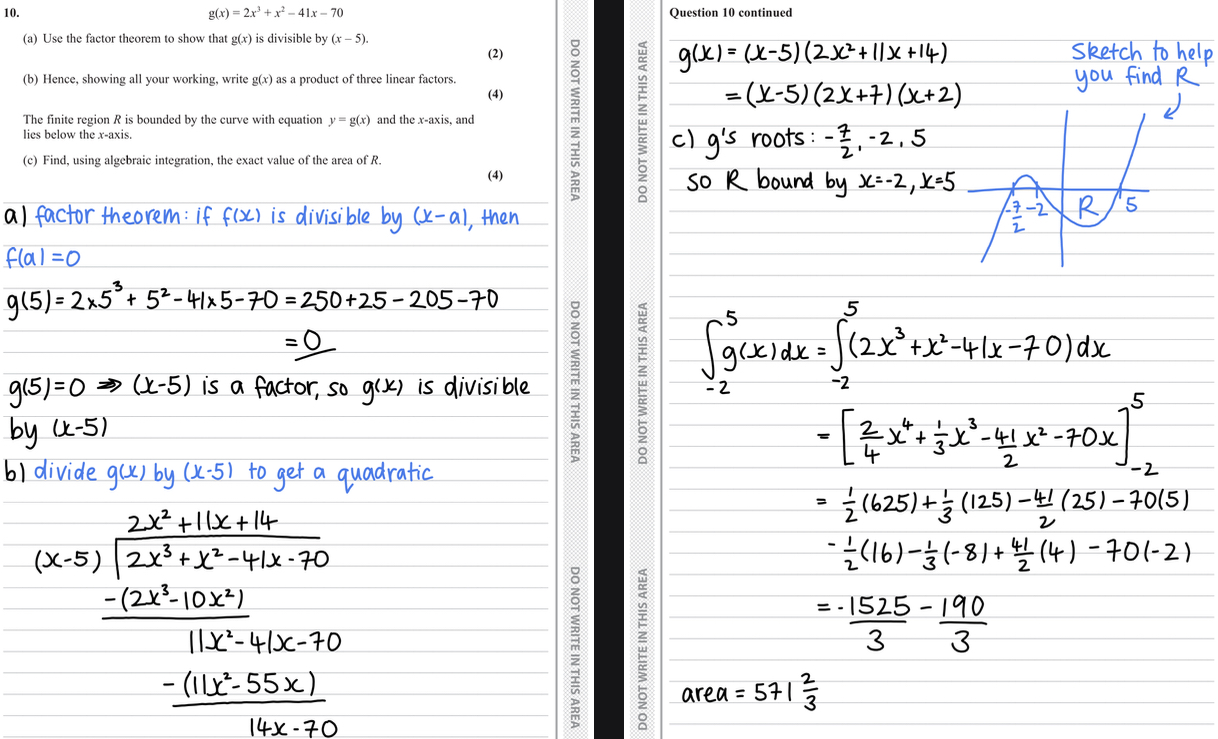 10.
g(x) = 2x³ + x² – 41x – 70
(a) Use the factor theorem to show that g(x) is divisible by (x – 5).
(2)
(b) Hence, showing all your working, write g(x) as a product of three linear factors.
(4)
The finite region R is bounded by the curve with equation y = g(x) and the x-axis, and
lies below the x-axis.
(c) Find, using algebraic integration, the exact value of the area of R.
(4)
a) factor theorem: if f(x) is divisible by (x-a), then
f(a) = 0
g(5) = 2×5³ + 5² - 41×5 - 70 = 250 + 25 - 205 - 70
= 0
g(5) = 0 ⇒ (x-5) is a factor, so g(x) is divisible
by (x-5)
b) divide g(x) by (x-5) to get a quadratic
2x² + 11x + 14
(x-5) 2x³ + x² - 41x - 70
-(2x³ - 10x²)
11x² - 41x - 70
-(11x² - 55x)
14x - 70
DO NOT WRITE IN THIS AREA
DO NOT WRITE IN THIS AREA
DO NOT WRITE IN THIS AREA
DO NOT WRITE IN THIS AREA
DO NOT WRITE IN THIS AREA
DO NOT WRITE IN THIS AREA
Question 10 continued
g(x) = (x-5)(2x² + 11x + 14)
= (x-5)(2x+7)(x+2)
Sketch to help
you find R
c) g's roots: -7/2, -2, 5
so R bound by x=-2, x=5
-7/2 -2 R 5
∫₋₂⁵ g(x) dx = ∫₋₂⁵ (2x³ + x² - 41x - 70) dx
= [2/4 x⁴ + 1/3 x³ - 41/2 x² - 70x]₋₂⁵
= 1/2 (625) + 1/3 (125) - 41/2 (25) - 70(5)
- 1/2 (16) - 1/3 (-8) + 41/2 (4) - 70(-2)
= -1525/3 - 190/3
area = 571 2/3